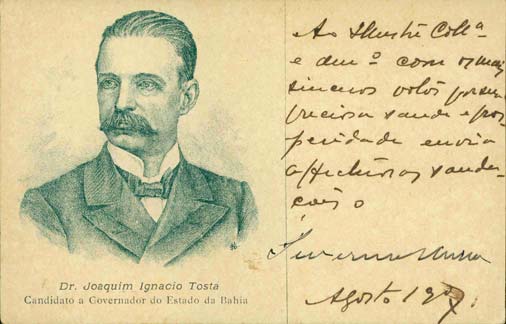 Dr. Joaquim Ignacio Tosta
Candidato a Governador do Estado da Bahia
Ao Illustre Coll.ª
e am.º com os mais
sinceros votos por sua
preciosa saude e pros-
peridade envia
affectuosas sauda-
ções o
Agosto 1907.